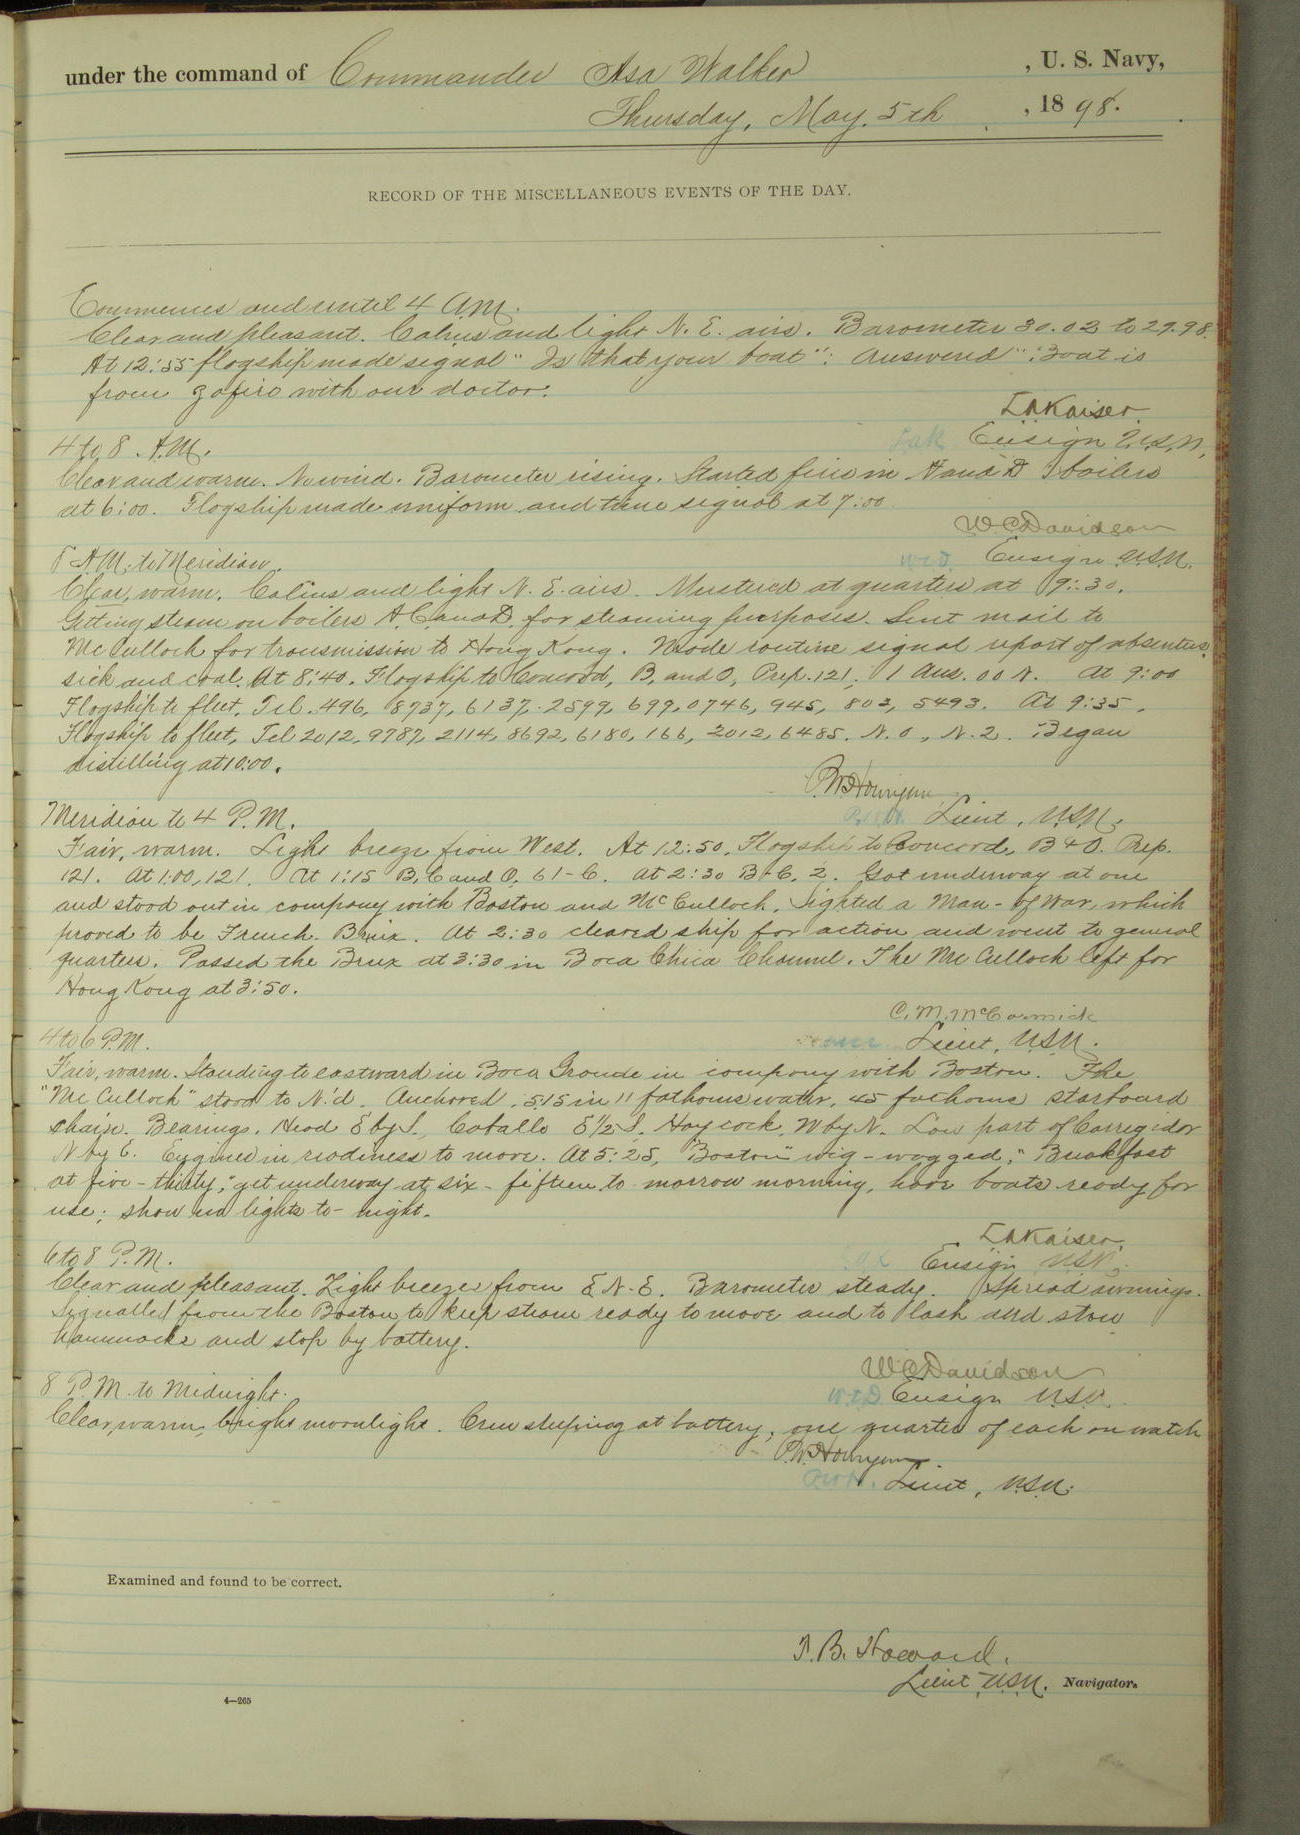 under the command of Commander Asa Walker, U. S. Navy,
Thursday, May 5th, 1898.
RECORD OF THE MISCELLANEOUS EVENTS OF THE DAY.
Commences and until 4 A.M.
Clear and pleasant. Calms and light N. E. airs. Barometer 30.02 to 29.98.
At 12:55 flagship made signal "Is that your boat": answered "Boat is
from Zafiro with our doctor.
L A Kaiser
LAK Ensign U.S.N.
4 to 8 A.M.
Clear and warm. No wind. Barometer rising. Started fires in A and D boilers
at 6:00. Flagship made uniform and time signal at 7:00
W C Davidson
WCD Ensign U.S.N.
8 A.M. to Meridian.
Clear, warm. Calms and light N. E. airs. Mustered at quarters at 9:30.
Getting steam on boilers A. C. and D. for steaming purposes. Sent mail to
McCulloch for transmission to Hong Kong. Made routine signal report of absentees
sick and coal. At 8:40. Flagship to Concord, B. and O, Prep. 121, 1 Ans. 00 N. At 9:00
Flagship to fleet, Tel. 496, 8737, 6137, 2599, 699, 0746, 945, 803, 5493. At 9:35,
Flagship to fleet, Tel 2012, 9787, 2114, 8692, 6180, 166, 2012, 6485. N. O, N. 2. Began
distilling at 10:00.
P. W. Hourigan
Lieut, U.S.N.
Meridian to 4 P.M.
Fair, warm. Light breeze from West. At 12:50, Flagship to Concord, B & O. Prep.
121. At 1:00, 121. At 1:15 B, C and O, 61-C. At 2:30 B-C, 2. Got underway at one
and stood out in company with Boston and McCulloch. Sighted a Man-of War, which
proved to be French Bruix. At 2:30 cleared ship for action and went to general
quarters. Passed the Brux at 3:30 in Boca Chica Channel. The McCulloch left for
Hong Kong at 3:50.
C. M. McCormick
Lieut, U.S.N.
4 to 6 P.M.
Fair, warm. Standing to eastward in Boca Grande in company with Boston. The
"McCulloch" stood to N'd. Anchored, 5.15 in 11 fathoms water, 45 fathoms starboard
chain. Bearings, Head E by S., Caballo E ½ S., Haycock, W by N. Low part of Corregidor
N by E. Engines in readiness to move. At 5:25, Boston "wig-wagged," "Breakfast
at five-thirty," get underway at six-fifteen to-morrow morning, have boats ready for
use; show no lights to-night.
L A Kaiser
Ensign USN.
6 to 8 P.M.
Clear and pleasant. Light breezes from E N. E. Barometer steady. Spread awnings.
Signalled from the Boston to keep steam ready to move and to lash and stow
hammocks and stop by battery.
W C Davidson
W.C.D. Ensign USN.
8 P.M. to Midnight.
Clear, warm, bright moonlight. Crew sleeping at battery, one quarter of each on watch
P. W. Hourigan
PWH. Lieut, U.S.N.
Examined and found to be correct.
T. B. Howard,
Lieut U.S.N. Navigator.
4—265